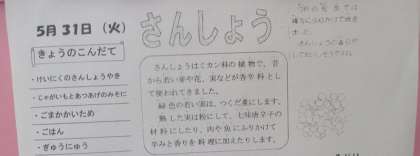 5月31日（火）
さんしょう
きょうのこんだて
・けいにくのさんしょうやき
・じゃがいもとあつあげのみそに
・ごまかかいため
・ごはん
・ぎゅうにゅう
さんしょうはミカン科の植物で、昔
から若い芽や花、実などが香辛料とし
て使われてきました。
緑色の若い実は、つくだ煮にします。
熟した実は粉にして、七味唐辛子の
材料にしたり、肉や魚にふりかけて
辛みと香りを料理に加えたりします。